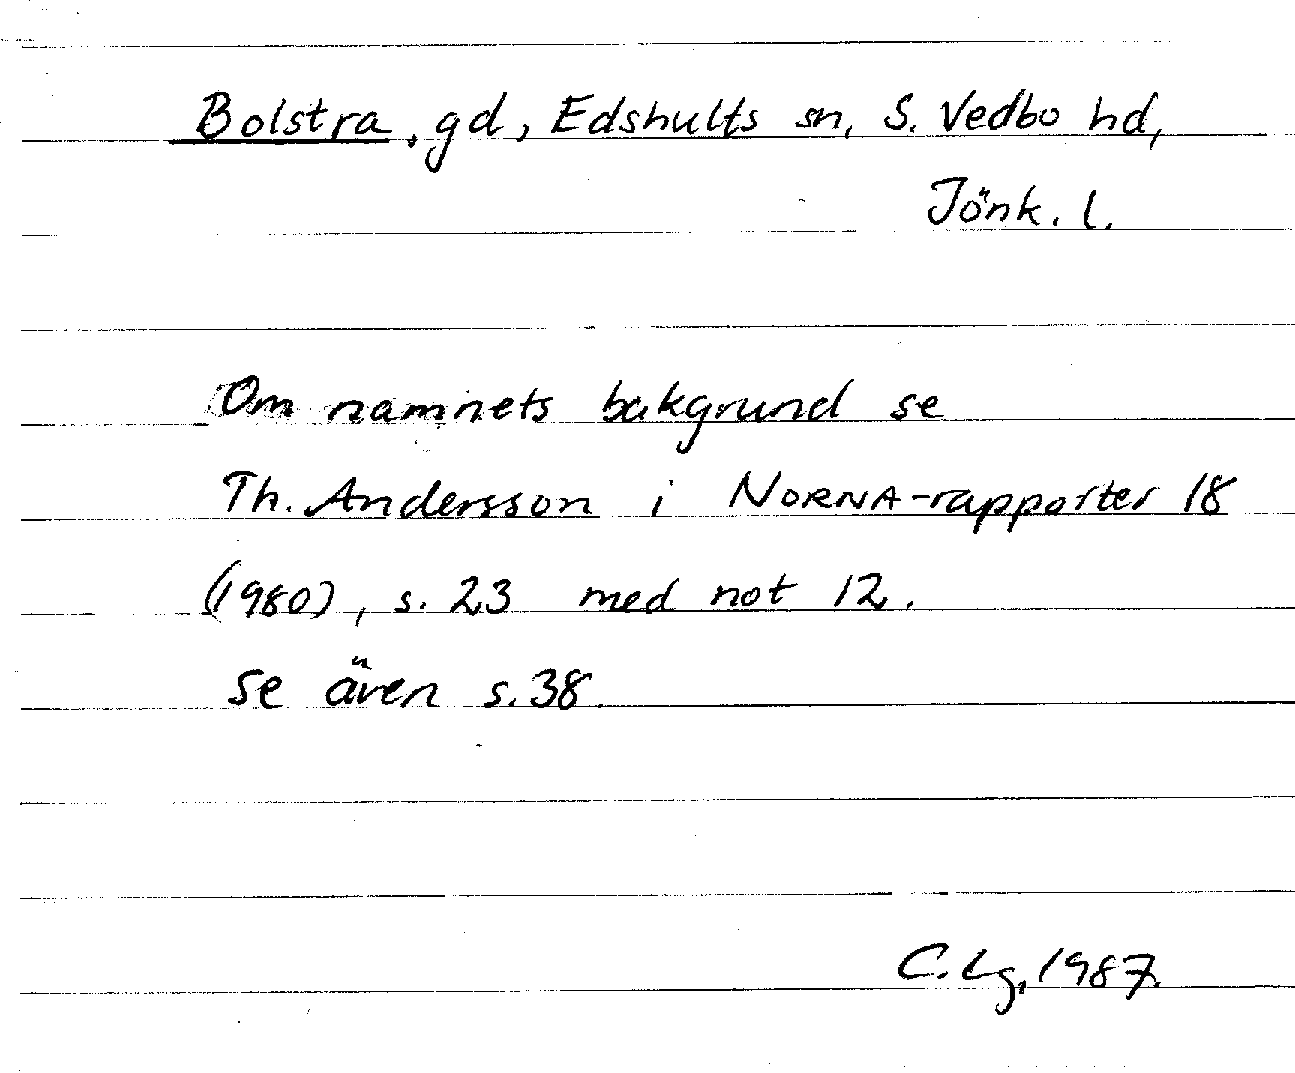 Bolstra, gd, Edshults sn, S. Vedbo hd,
Jönk. l.
Om namnets bakgrund se
Th. Andersson i NORNA-rapporter 18
(1980), s. 23 med not 12.
Se även s. 38.
C. Lg, 1987.